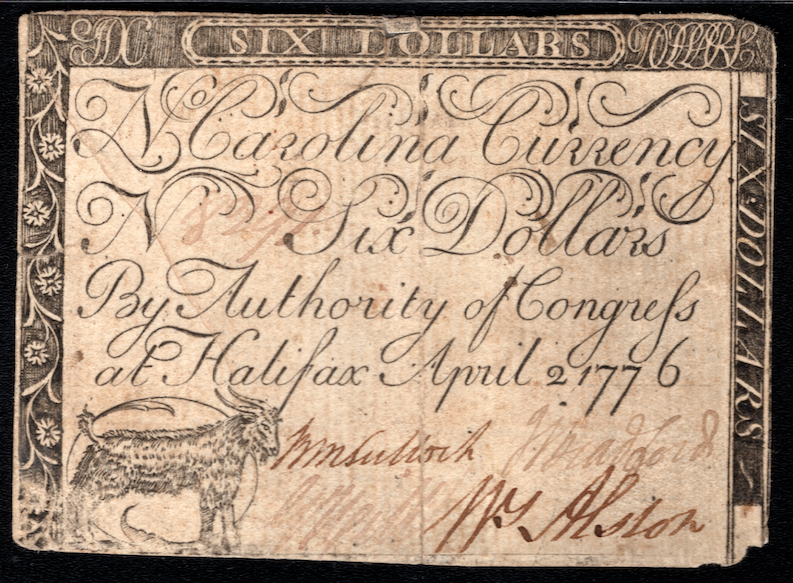 SIX SIX DOLLARS DOLLARS
N Carolina Currency
No Six Dollars
By Authority of Congreſs
at Halifax April 2 1776
Wm
Wy Alston
SIX·DOLLARS